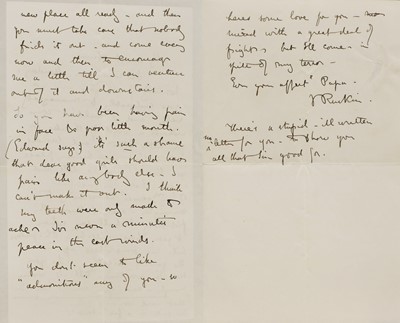 new place all ready - and then
you must take care that nobody
finds it out - and come every
now and then to encourage
me a little till I can venture
out of it and downstairs.
So you have been having pain
in face & poor little mouth.
(Edward says) it's such a shame
that dear good girls should have
pain like anybody else - I
can't make it out. I think
my teeth were only made to
ache & I've never a minute's
peace in the east winds.
You don't seem to like
"admonitions" any of you - so
here's some love for you -
mixed with a great deal of
fright & but I'll come - in
spite of my terror -
Ever your affect Papa.
J Ruskin.
There's a stupid - ill written
letter for you - to show you
all that I'm good for.